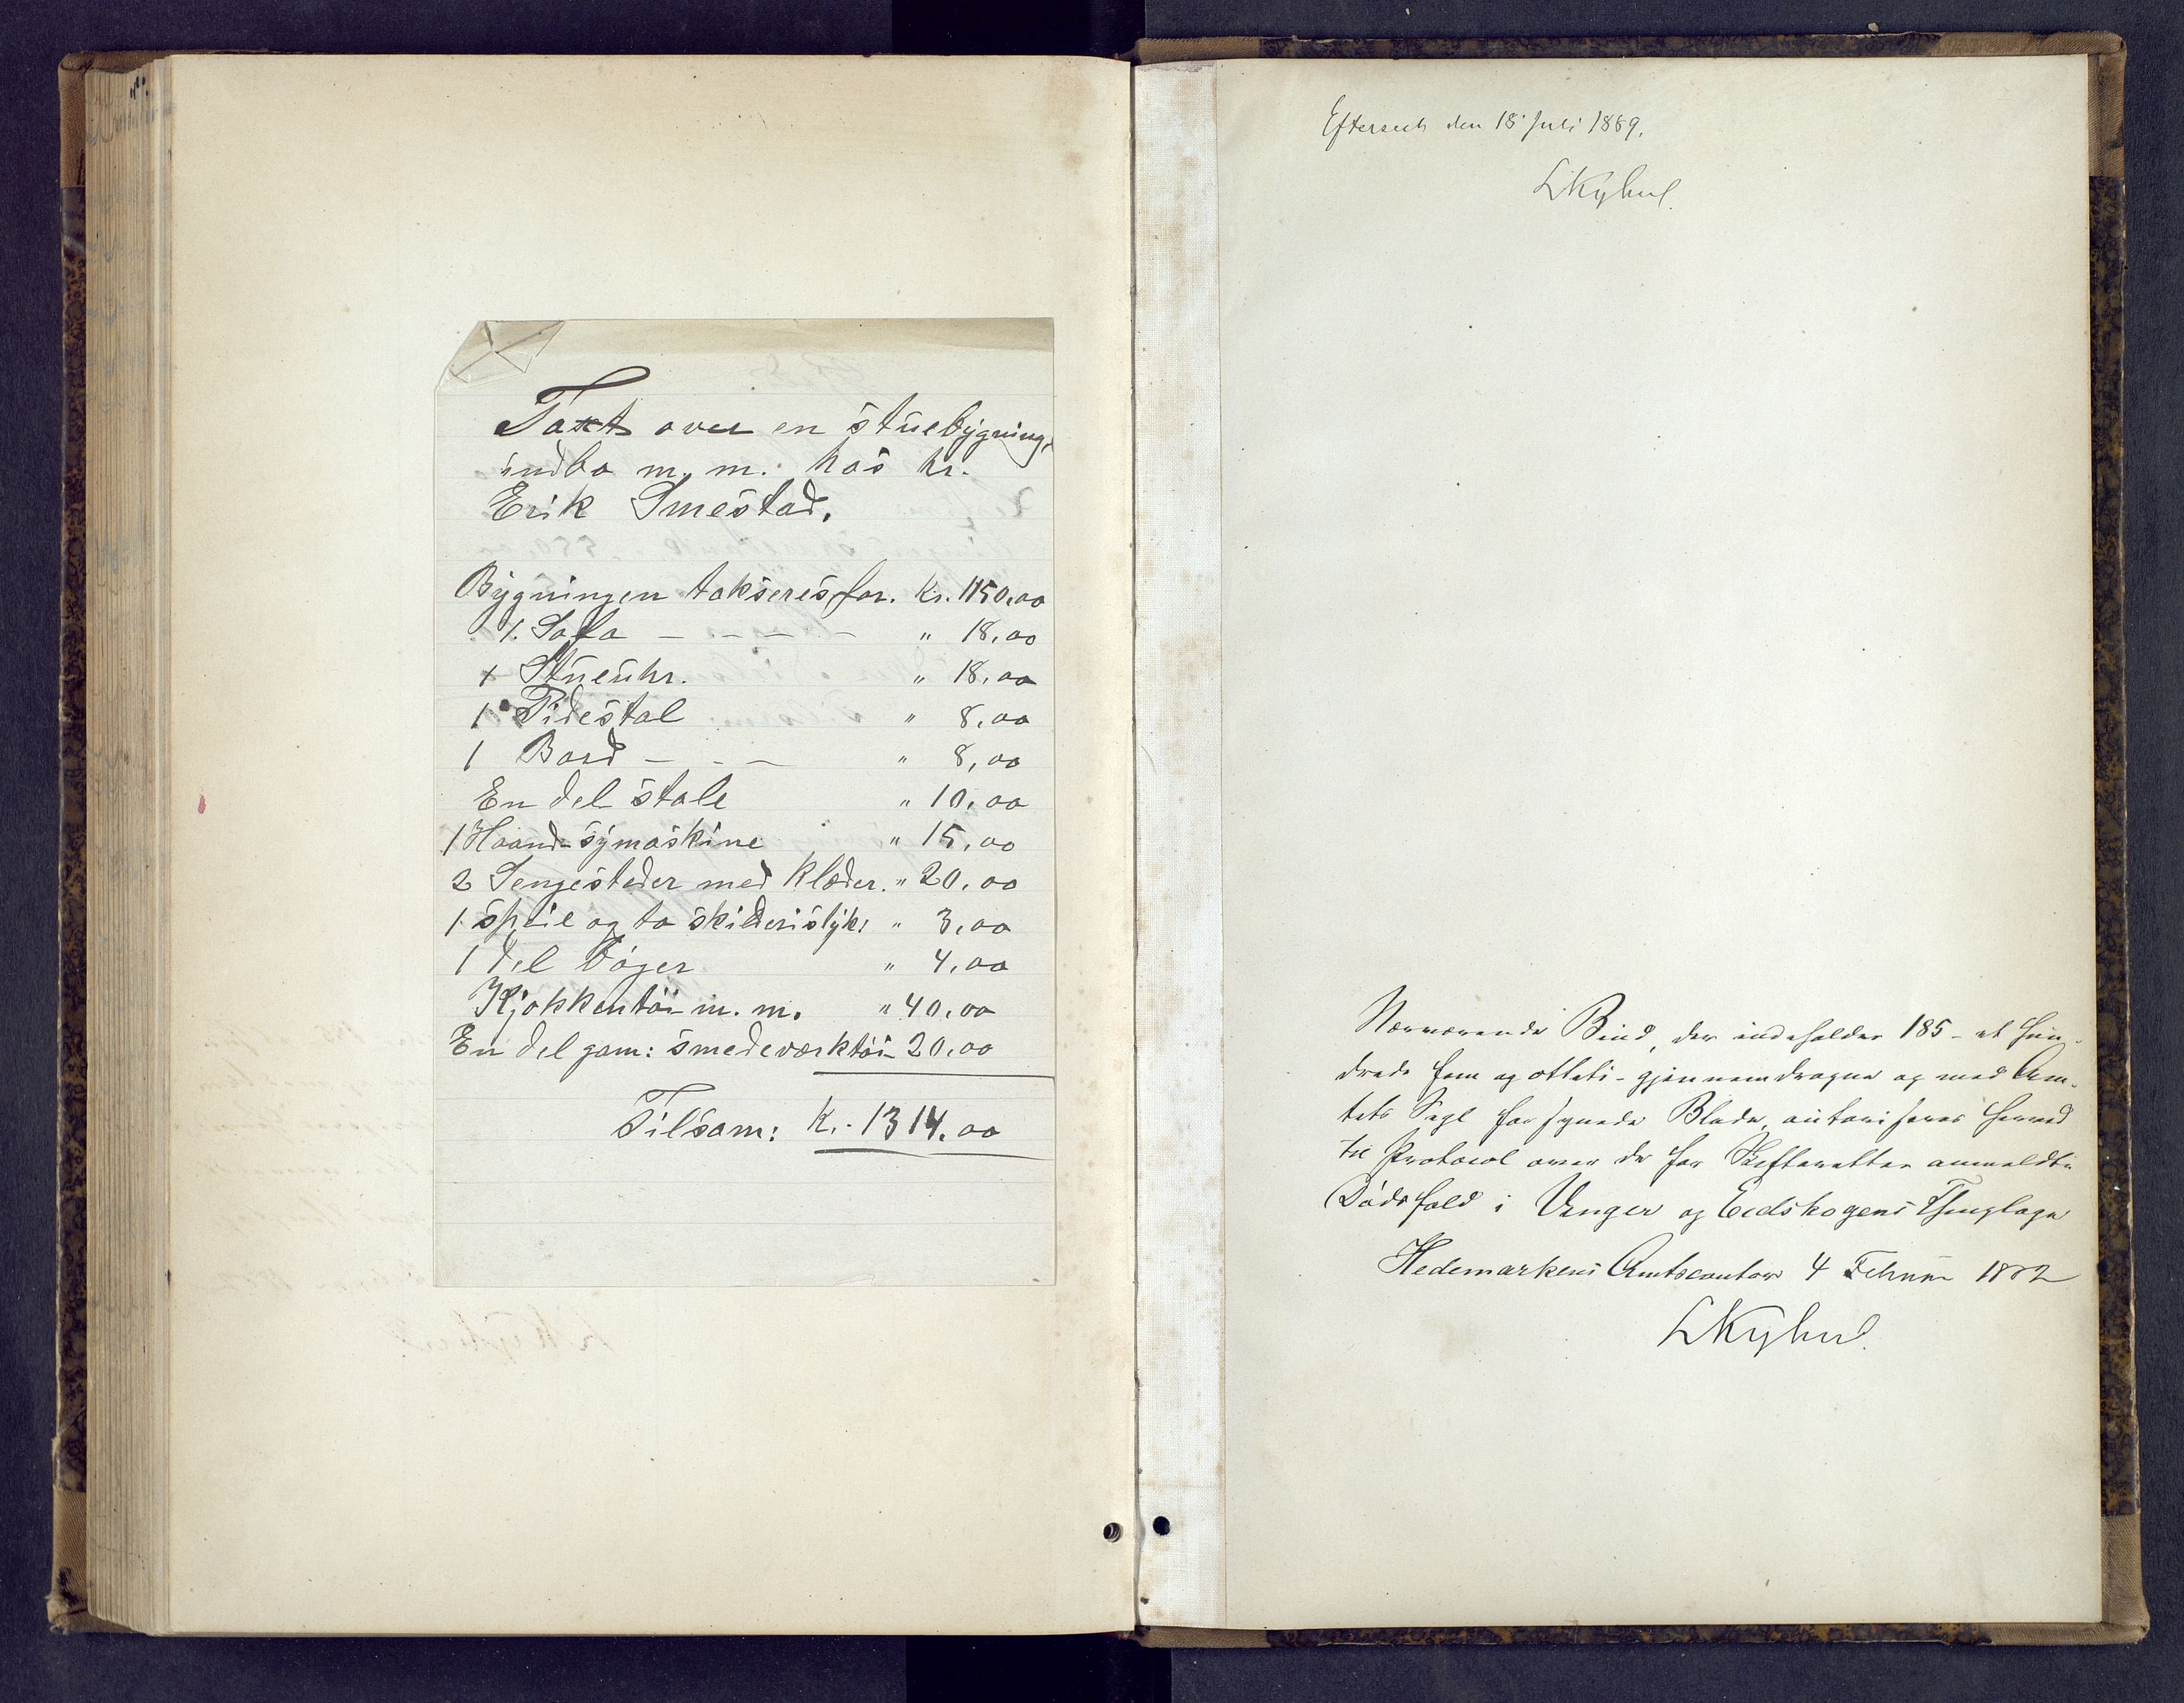 Taxt over en stuebygning,
indbo m. m. hos hr.
Erik Smestad.
Bygningen takseres for. Kr. 1150,00
1. Sofa – – – – – " 18,00
1 Stueuhr. " 18,00
1 Pidestal " 8,00
1 Bord – – – " 8,00
En del stole " 10,00
1 Haand-symaskine " 15,00
2 Sengesteder med klæder. " 20,00
1 speil og to skilderistyk: " 3,00
1 del bøger " 4,00
Kjøkkentøi m. m. " 40,00
En del gam: smedeværktøi - 20,00
Tilsam: Kr. 1314,00
Efterseet den 18 Juli 1889.
LKyhul
Nærværende Bind, der indeholder 185 - et hun-
drede fem og otteti - gjennemdragne og med Am-
tets Segl forsynede Blade, autoriseres herved
til Protocol over de for Skifteretten anmeldte
Dødsfald i Vinger og Eidskogens Thinglage
Hedemarkens Amtscontor 4 Februar 1882
LKyhul